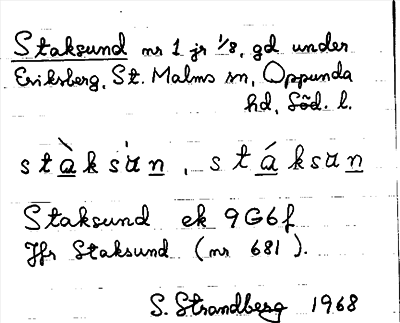 Staksund nr 1 jr 1/8, gd under
Eriksberg, St. Malms sn, Oppunda
hd, Söd. l.
stàksùn, stáksun
Staksund ek 9G6f
Jfr Staksund (nr 681).
S. Strandberg 1968